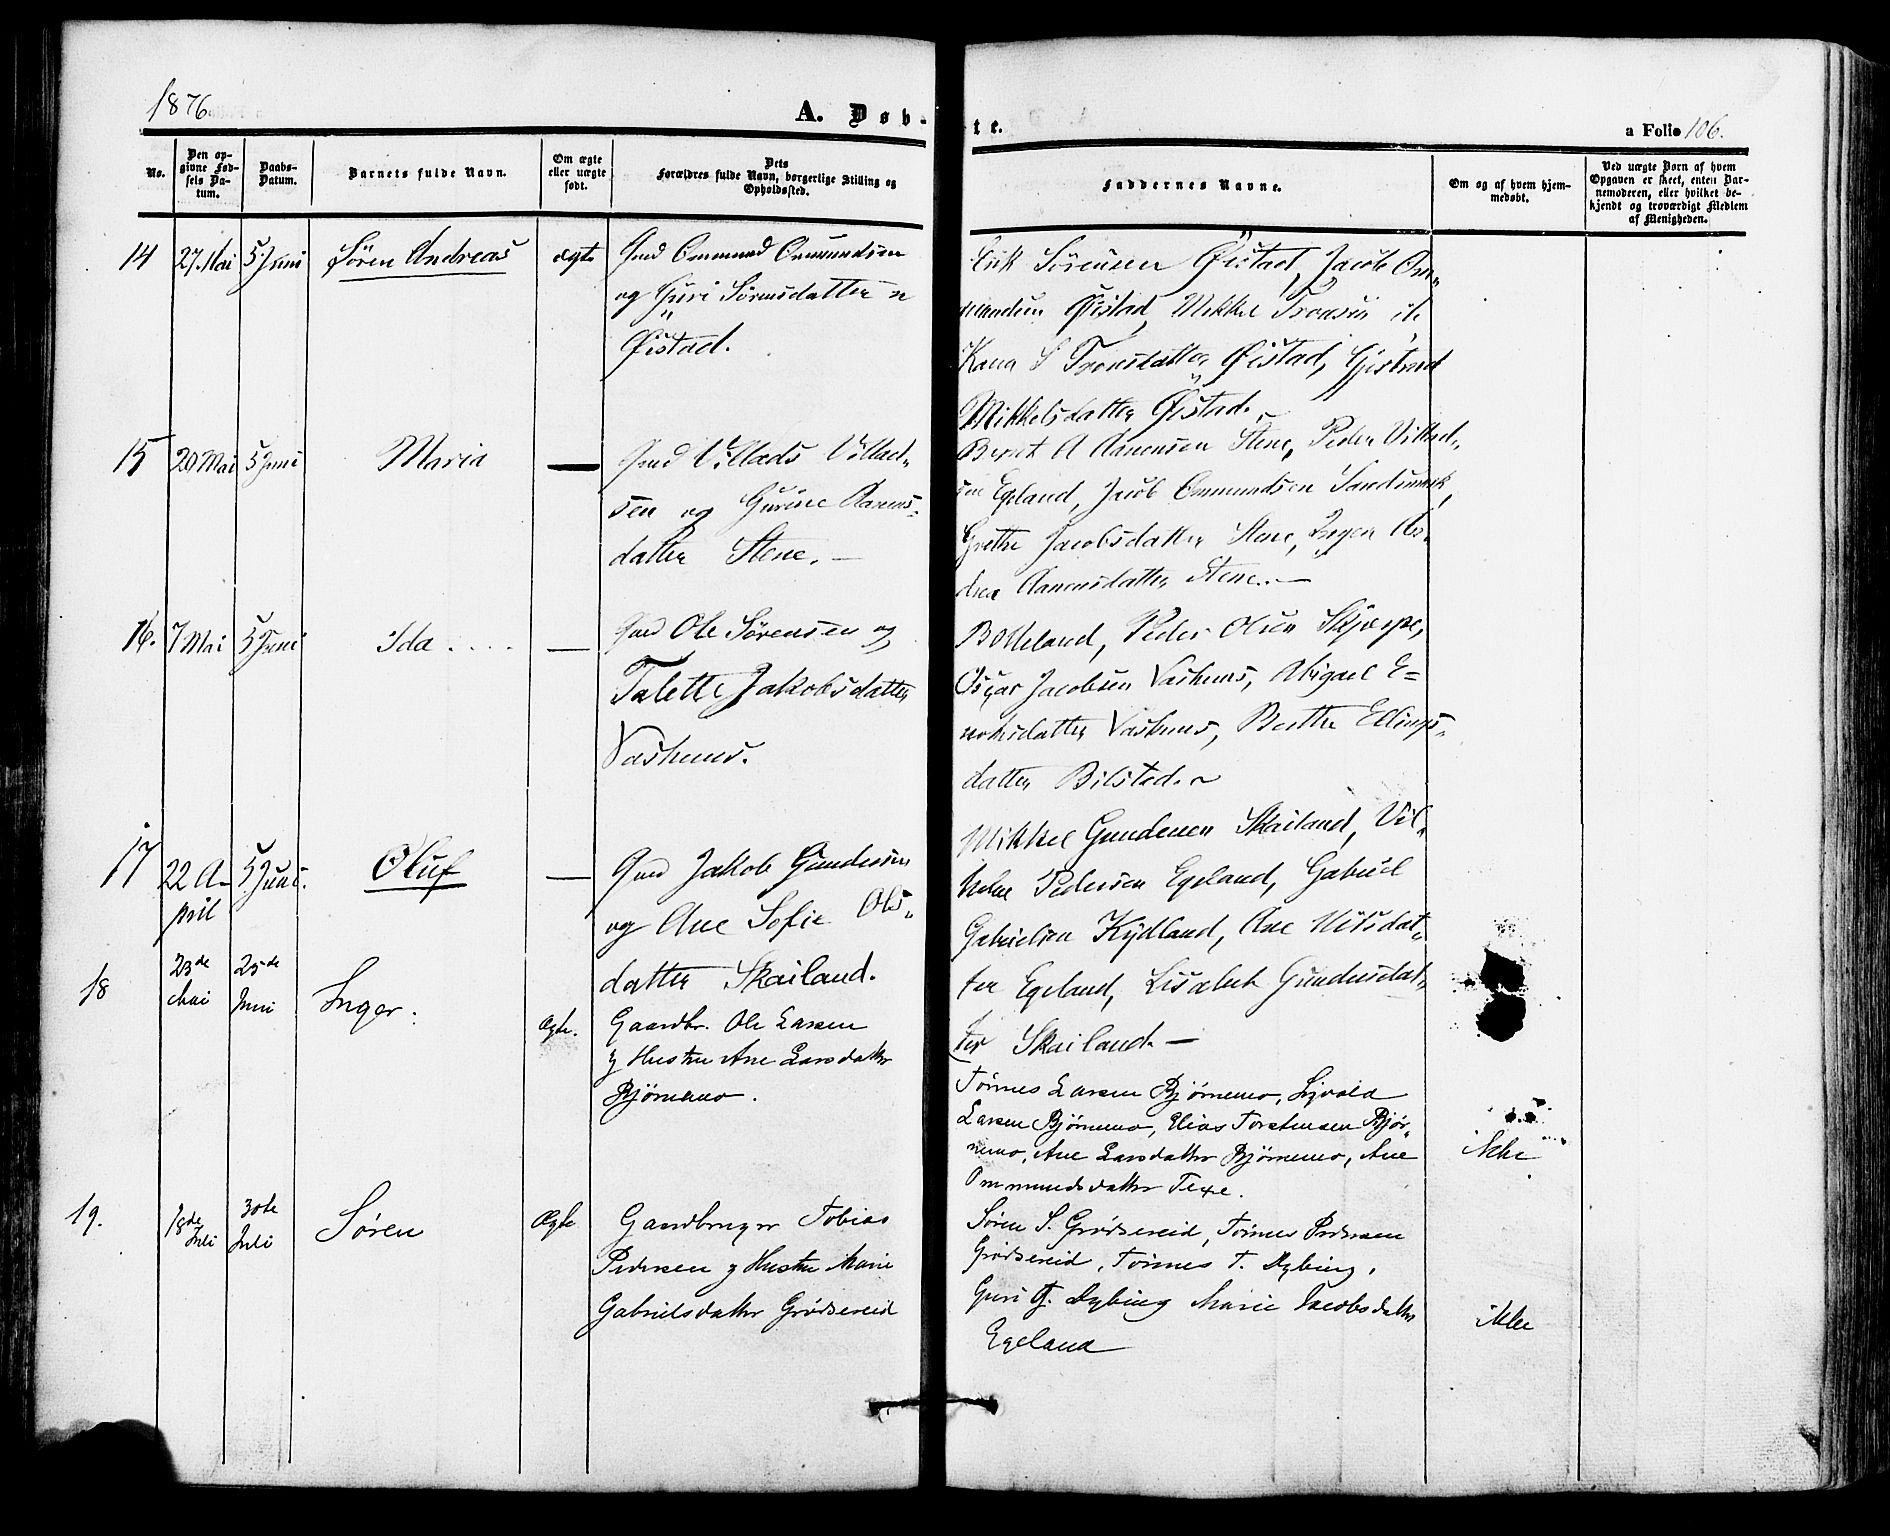 1876
A. Døb-
te.
a Folio 106.
No.
Den op-
givne Fød-
sels Da-
tum.
Daabs-
Datum.
Barnets fulde Navn.
Om ægte
eller uægte
født.
Dets
Forældres fulde Navn, borgerlige Stilling og
Opholdssted.
Faddernes Navne.
Om og af hvem hjem-
medøbt.
Ved uægte Børn af hvem
Opgaven er skeet, enten Bar-
nemoderen, eller hvilket be-
kjendt og troværdigt Medlem
af Menigheden.
14
27. Mai
5. Juni
Søren Andreas
ægte
Gmd Ommund Ommundsen
og Guri Sørensdatter
Øistad.
Erik Sørensen Øistad, Jacob Om-
mundsen Øistad, Mikkel Tronsen
Tronsdatter Øistad, Gjertrud
Mikkelsdatter Øistad.
15
20 Mai
5 Juni
Maria
—
Gmd Villads Villad-
sen og Gurine Aanens-
datter Stene. —
Berent A Aanensen Stene, Peder Villad-
sen Egeland, Jacob Ommundsen
Grethe Jacobsdatter Stene, Inger
Aanensdatter Stene. —
16.
7 Mai
5 Juni
Ida . . . .
—
Gmd Ole Sørensen og
Talette Jakobsdatter
Vashuus.
Peder Olsen Skjerpe,
Osçar Jacobsen Vashuus, Abigael E=
noksdatter Vashuus, Berthe Ellings-
datter Bilsted.
17
22 A-
pril
5 Juni.
Oluf
—
Gmd Jakob Gundersen
og Ane Sofie Ols-
datter Skailand.
Mikkel Gundersen Skailand, Vil-
helm Pedersen Egeland, Gabriel
Gabrielsen Kydland, Ane Nilsdat-
ter Egeland, Lisabet Gundersdat-
ter Skailand. —
18
23de
Mai
25de
Juni
Inger.
Ægte.
Gaardbr. Ole Larsen
og Hustru Ane Larsdatter
Bjørnemo.
Tønnes Larsen Bjørnemo, Sigvald
Larsen Bjørnemo, Elias Torstensen Bjør-
nemo, Ane Larsdatter Bjørnemo, Ane
Ommundsdatter Texe.
ikke
19.
18de
Juli
30te
Juli
Søren
Ægte
Gaardbruger Tobias
Pedersen og Hustru Marie
Gabrielsdatter Grødsereid
Søren S. Grødsereid, Tønnes Pedersen
Grødsereid, Tønnes T. Dybing,
Guri T. Dybing Marie Jacobsdatter
Egeland
ikke